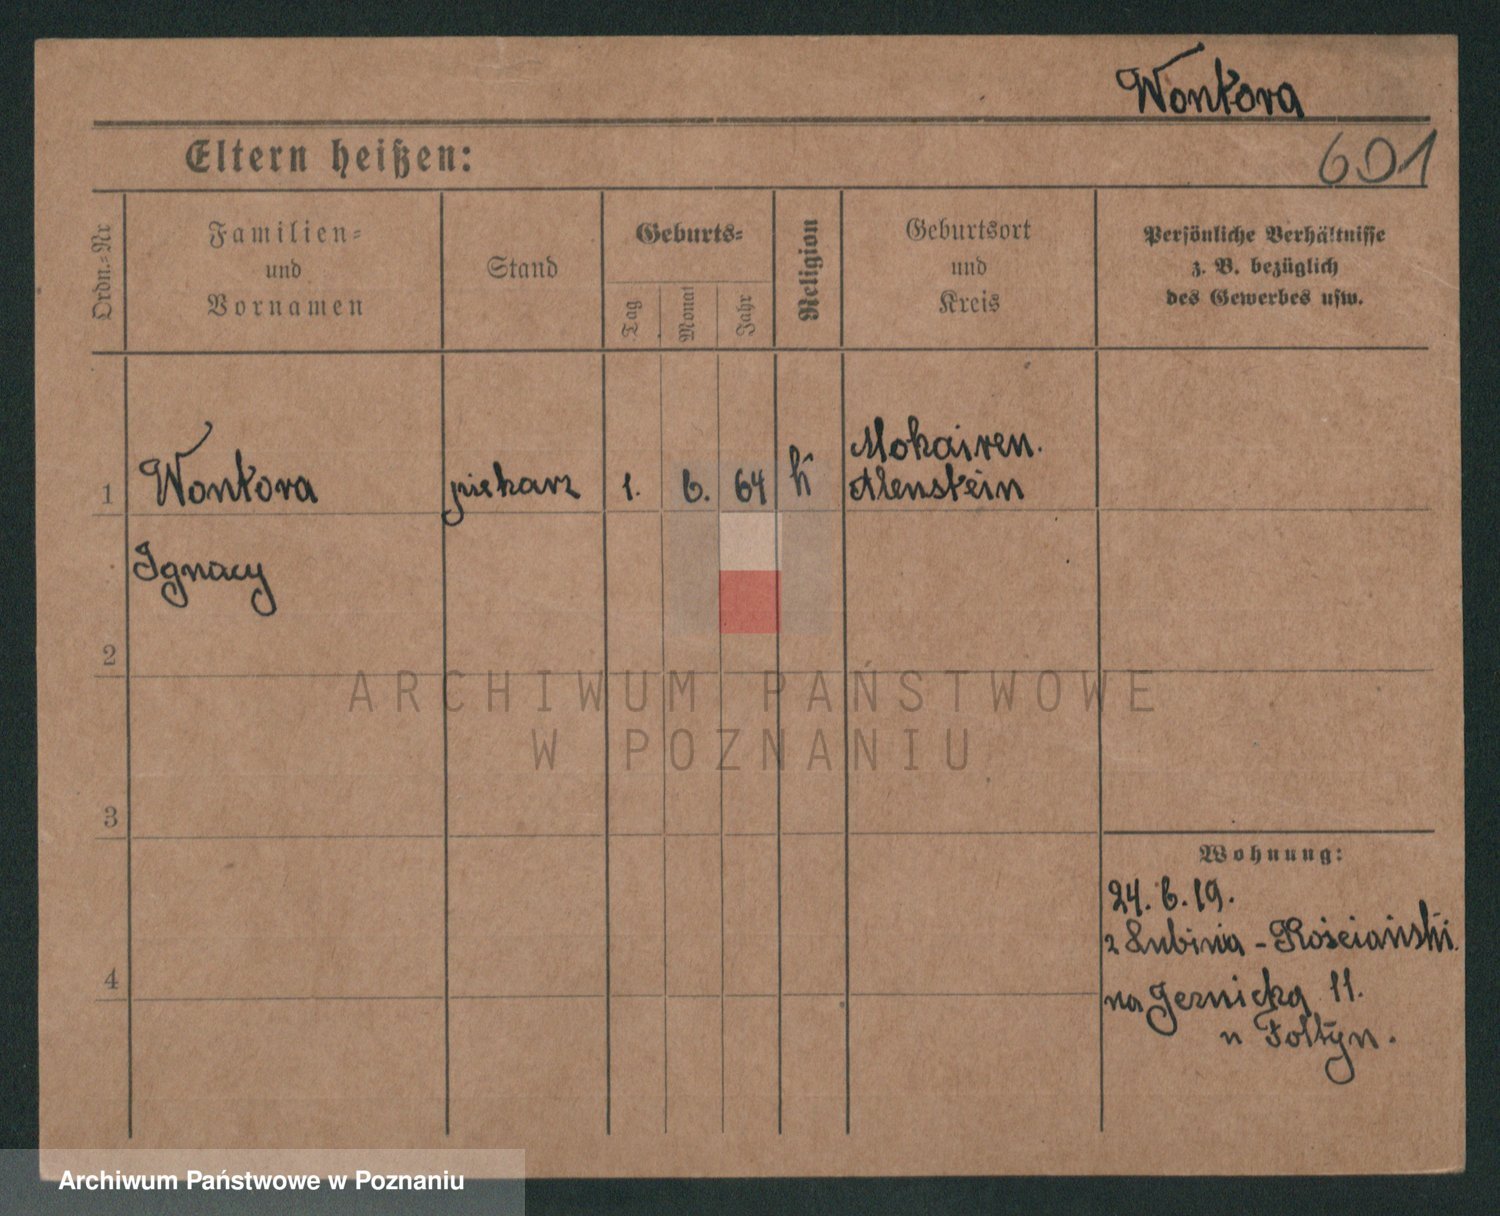 Wontora
601
Eltern heißen:
Ordn.=Nr
Familien=
und
Vornamen
Stand
Geburts=
Tag
Monat
Jahr
Religion
Geburtsort
und
Kreis
Persönliche Verhältnisse
z. B. bezüglich
des Gewerbes usw.
1
Wontora
piekarz
1.
6.
64
k
Mokairen.
Alenstein
Ignacy
2
3
4
Wohnung:
24. 6. 19.
z Lubinia - Kościański.
na 11.
u Foltyn.
ARCHIWUM PAŃSTWOWE
W POZNANIU
Archiwum Państwowe w Poznaniu